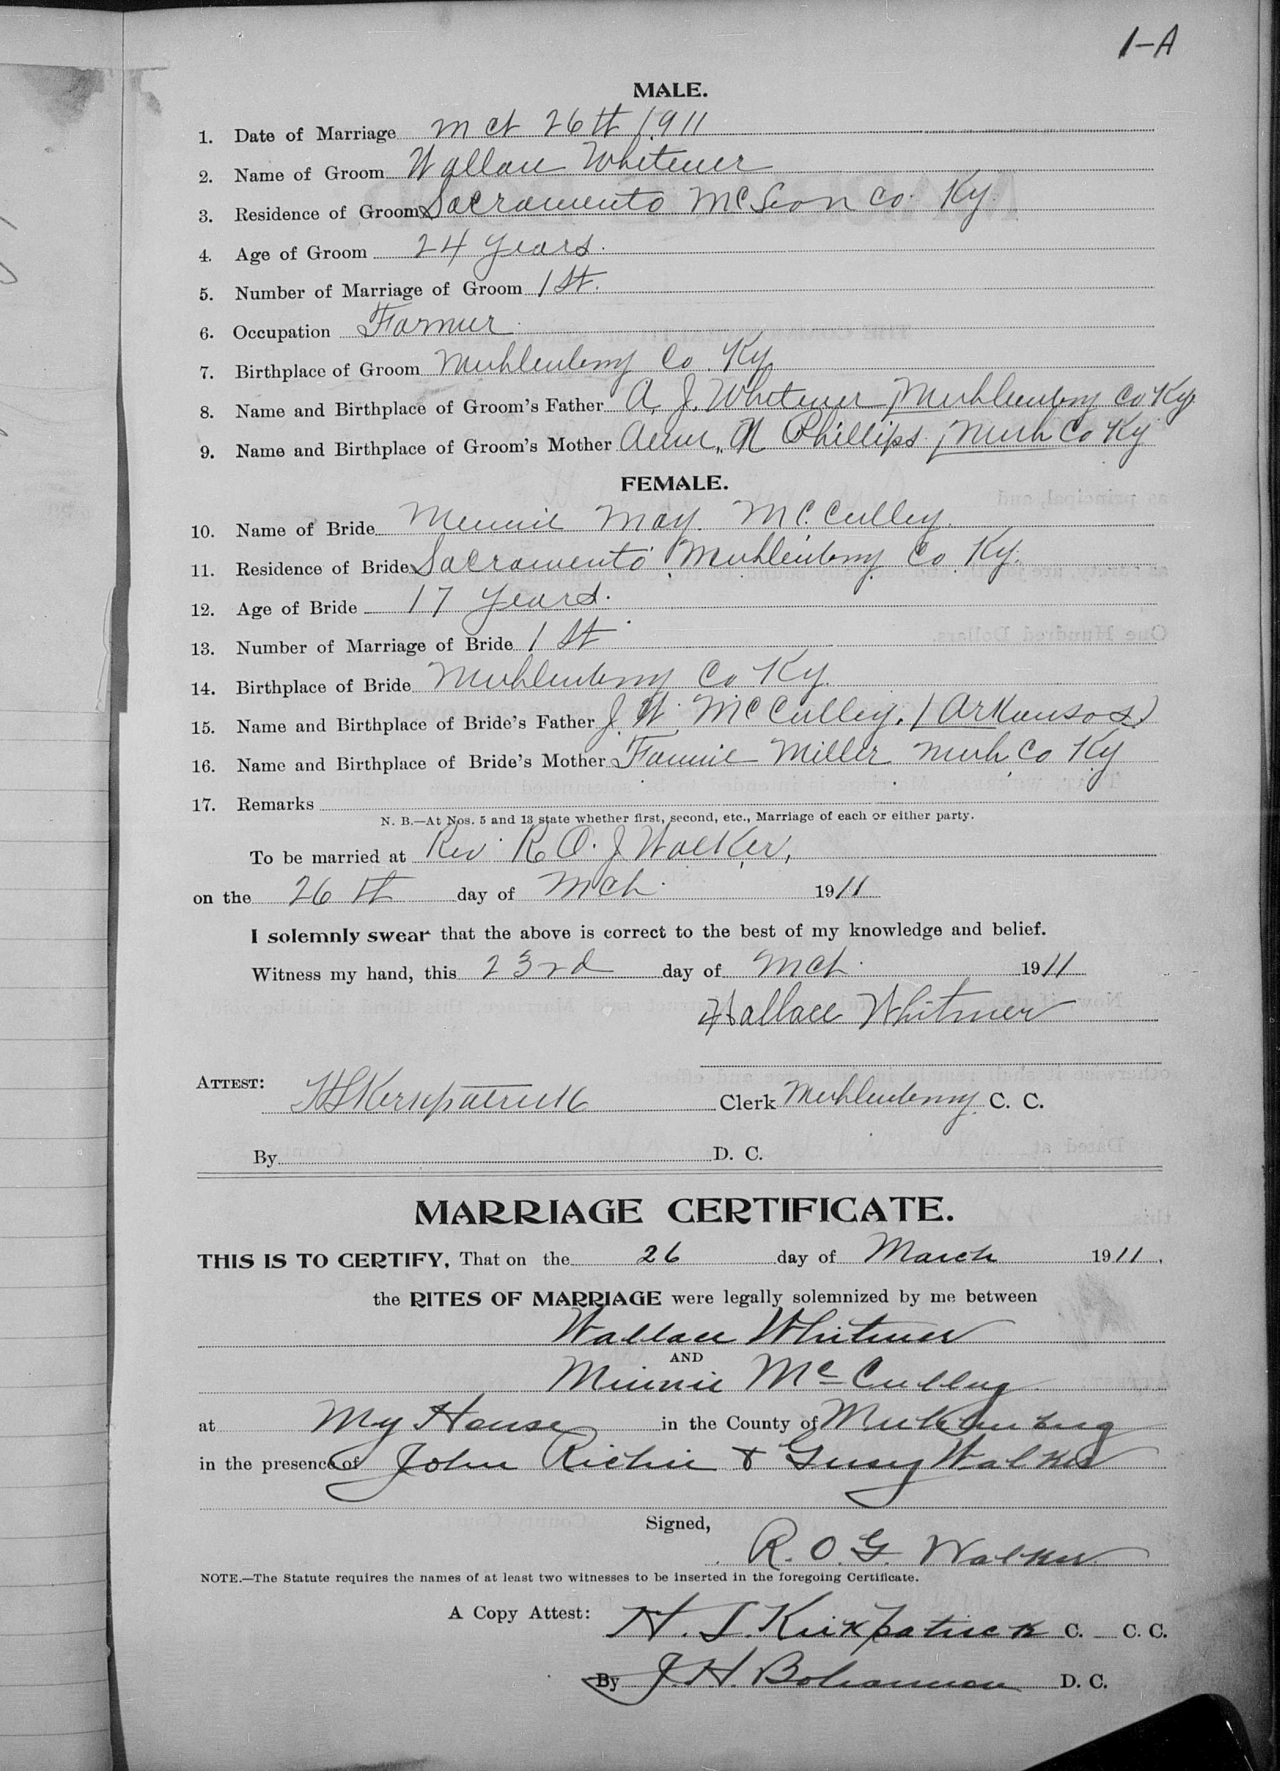 1-A
MALE.
1. Date of Marriage Mch 26th 1911
2. Name of Groom Wallace Whitmer
3. Residence of Groom Sacramento McLean Co. Ky.
4. Age of Groom 24 years.
5. Number of Marriage of Groom 1st.
6. Occupation Farmer
7. Birthplace of Groom Muhlenberg Co. Ky
8. Name and Birthplace of Groom's Father A. J. Whitmer / Muhlenberg Co Ky
9. Name and Birthplace of Groom's Mother N Phillips / Muh Co Ky
FEMALE.
10. Name of Bride Minnie May McCulley.
11. Residence of Bride Sacramento Muhlenberg Co Ky.
12. Age of Bride 17 years.
13. Number of Marriage of Bride 1st
14. Birthplace of Bride Muhlenberg Co Ky.
15. Name and Birthplace of Bride's Father J. W. McCulley. (Arkansas)
16. Name and Birthplace of Bride's Mother Fannie Miller Muh Co Ky
17. Remarks
N. B.—At Nos. 5 and 13 state whether first, second, etc., Marriage of each or either party.
To be married at Rev. R. O. J Walker,
on the 26th day of Mch. 1911
I solemnly swear that the above is correct to the best of my knowledge and belief.
Witness my hand, this 23rd day of Mch. 1911
Wallace Whitmer
ATTEST: H S Kirkpatrick Clerk Muhlenberg C. C.
By D. C.
MARRIAGE CERTIFICATE.
THIS IS TO CERTIFY, That on the 26 day of March 1911,
the RITES OF MARRIAGE were legally solemnized by me between
Wallace Whitmer
AND
Minnie McCulley
at My House in the County of Muhlenberg
in the presence of John Richie & Walker
Signed,
R. O. G. Walker
NOTE.—The Statute requires the names of at least two witnesses to be inserted in the foregoing Certificate.
A Copy Attest: H. S. Kirkpatrick C. C. C.
By J. H. Bohannon D. C.